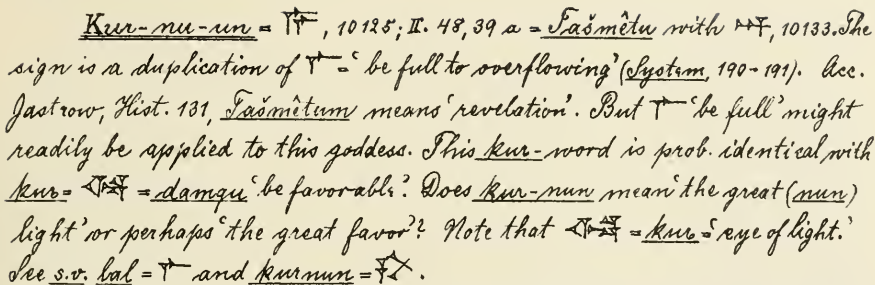 Kur-nu-un = , 10125; II. 48, 39 a = Tašmêtu with 𒀭, 10133. The
sign is a duplication of = 'be full to overflowing' (System, 190-191). Acc.
Jastrow, Hist. 131, Tašmêtum means 'revelation'. But 'be full' might
readily be applied to this goddess. This kur-word is prob. identical with
kur = = damqu 'be favorable'. Does kur-nun mean 'the great (nun)
light' or perhaps 'the great favor'? Note that = kur = 'eye of light.'
See s.v. lal = and kurnun = .